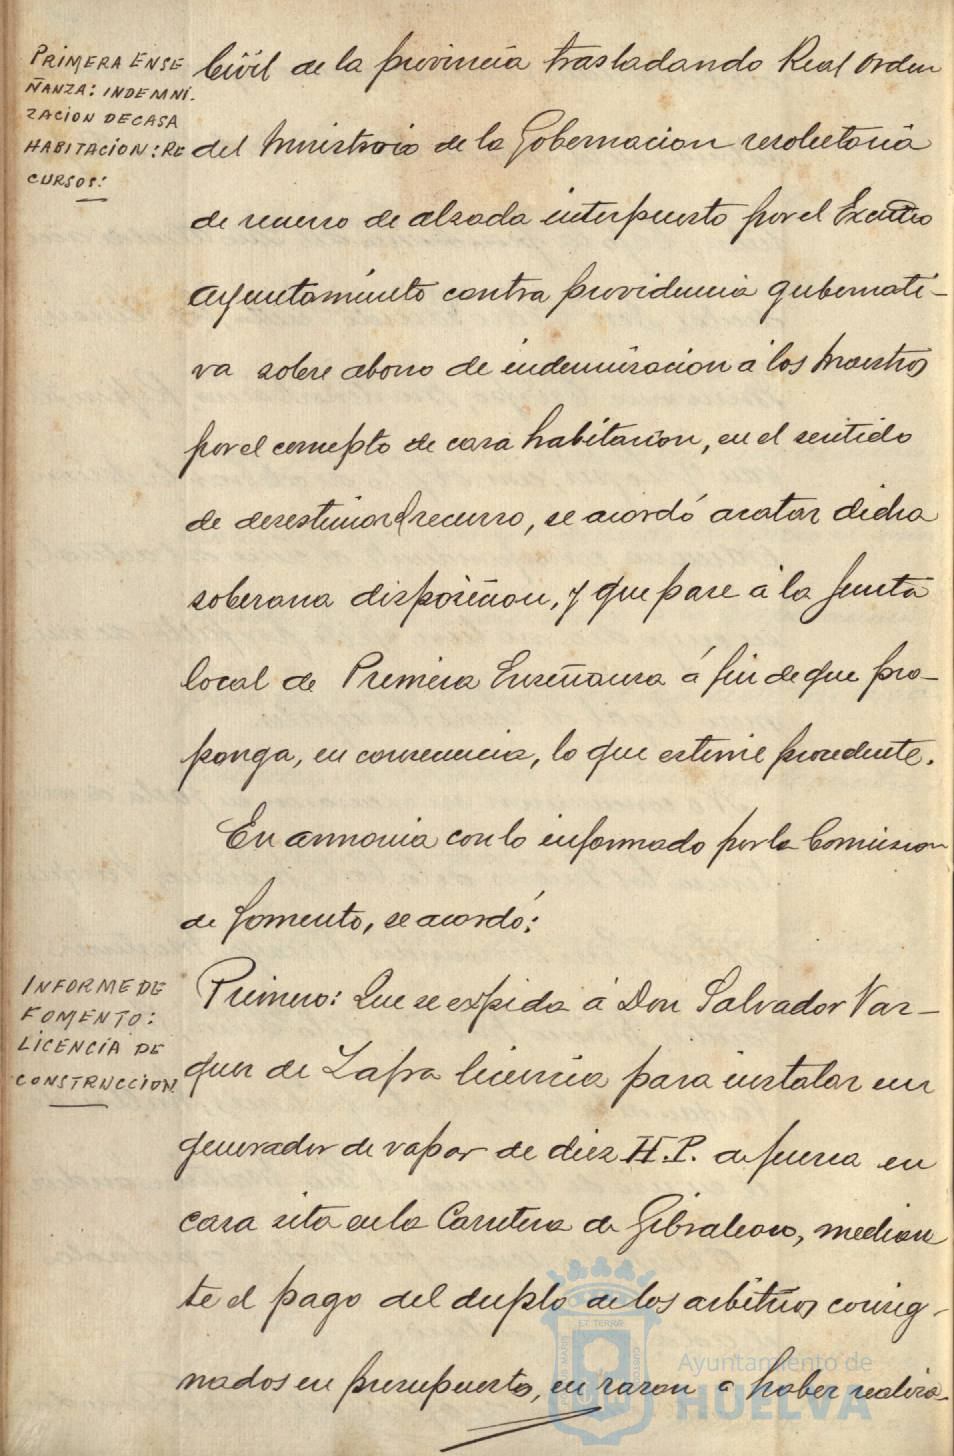 PRIMERA ENSE
ÑANZA: INDEMNI.
ZACION DE CASA
HABITACION: RE
CURSOS:
Civil de la provincia trasladando Real orden
del Ministerio de la Gobernacion resolutoria
de recurso de alzada interpuesto por el Excmo
Ayuntamiento contra providencia gubernati-
va sobre abono de indemnizacion á los Maestros
por el concepto de casa habitacion, en el sentido
de desestimar el recurso, se acordó acatar dicha
soberana disposicion, y que pase á la Junta
local de Primera Enseñanza á fin de que pro-
ponga, en consecuencia, lo que estime procedente.
En armonia con lo informado por la Comision
de Fomento, se acordó:
INFORME DE
FOMENTO:
LICENCIA DE
CONSTRUCCION
Primero: Que se expida á Don Salvador Vaz-
quez de Zafra licencia para instalar un
generador de vapor de diez H.P. de fuerza en
casa sita en la Carretera de Gibraleon, median
te el pago del duplo de los arbitrios consig-
nados en presupuesto, en razon á haber realiza
ET TERRÆ
Ayuntamiento de
HUELVA